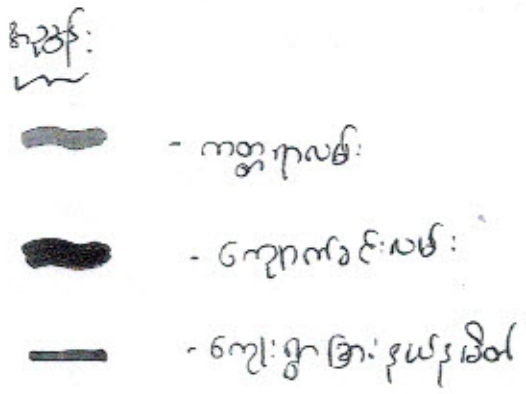 အညွှန်း
- ကတ္တရာလမ်း
- ကျောက်ခင်းလမ်း
- ကျေးရွာခြားနယ်နမိတ်